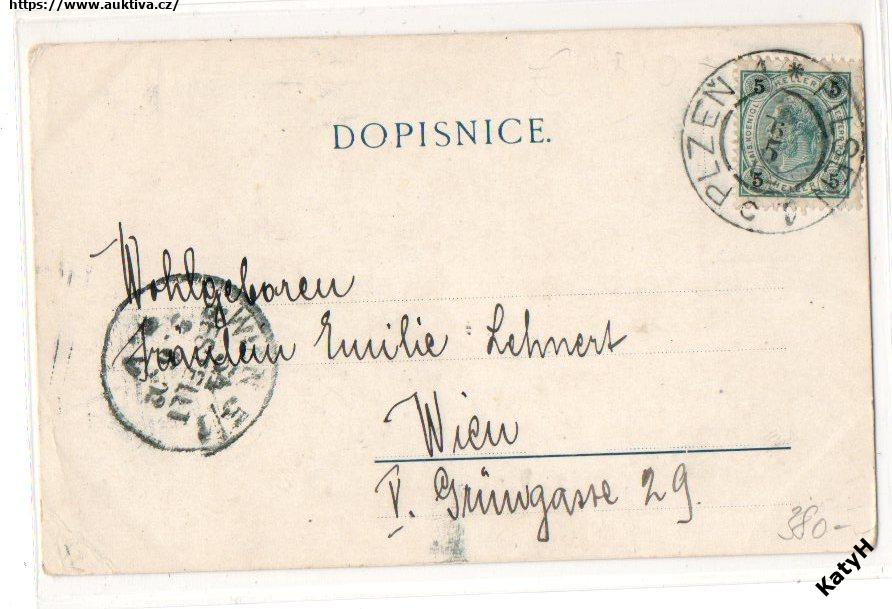 https://www.auktiva.cz/
DOPISNICE.
PLZEŇ 1 * PILSEN 1
5 5
5 5
Wohlgeboren
Fräulein Emilie Lehnert
Wien
V. Grüngasse 29.
WIEN
380-
KatyH